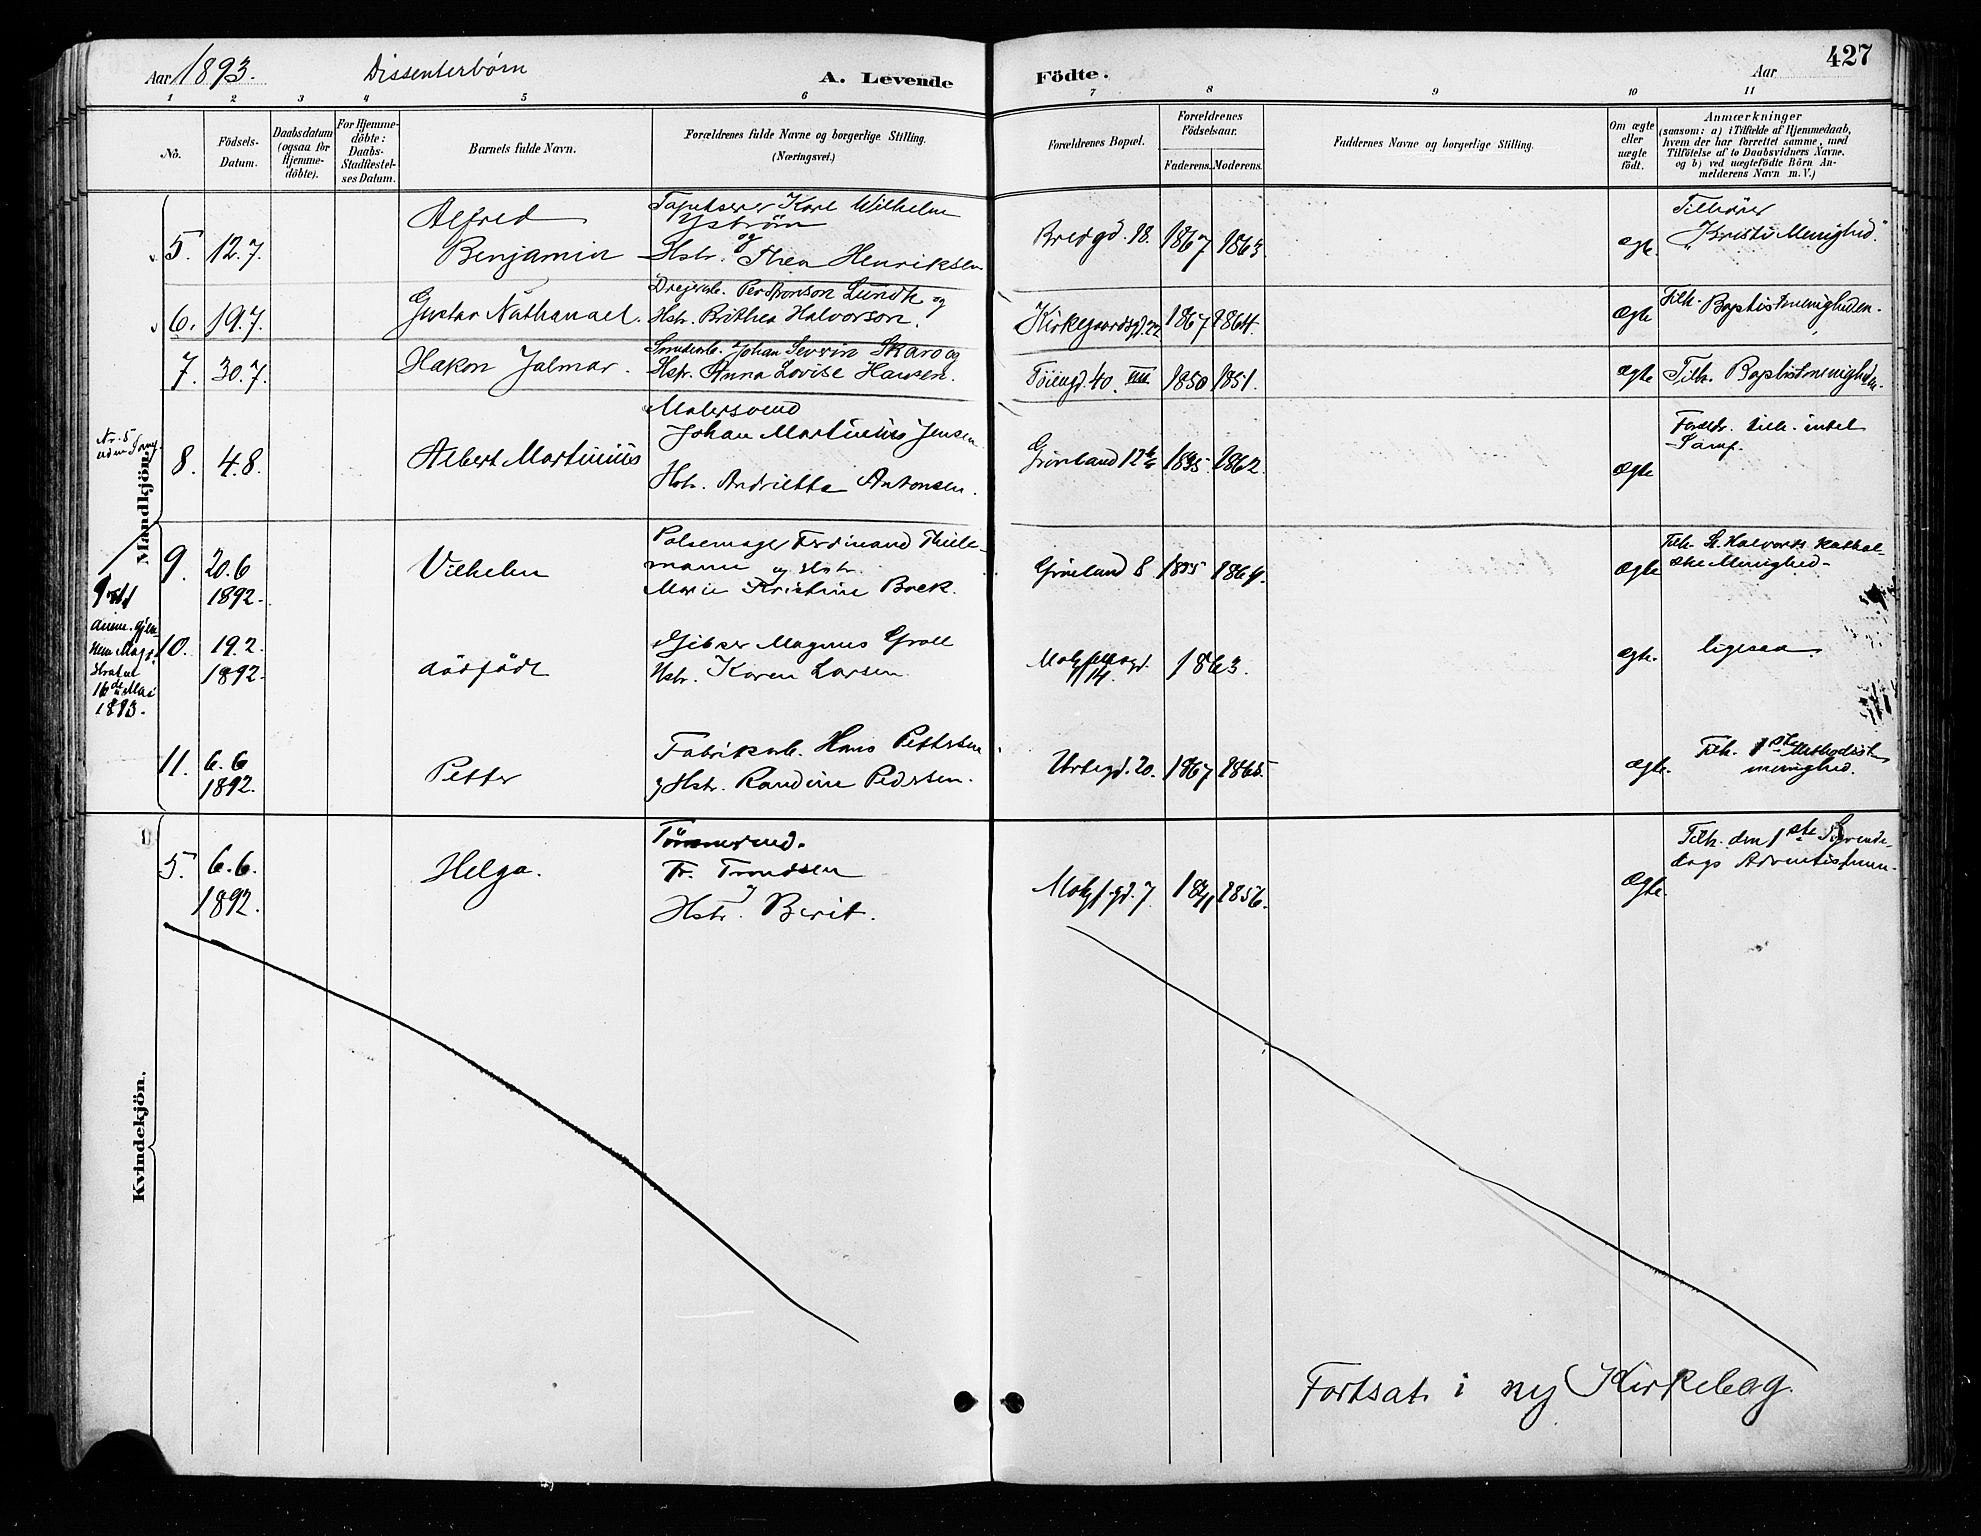 427
Aar 1893. Dissenterbørn A. Levende Födte. Aar
1 2 3 4 5 6 7 8 9 10 11
No.
Födsels-
Datum.
Daabsdatum
(ogsaa for
Hjemme-
döbte).
For Hjemme-
döbte:
Daabs-
Stadfæstel-
ses Datum.
Barnets fulde Navn.
Forældrenes fulde Navne og borgerlige Stilling.
(Næringsvei.)
Forældrenes Bopæl.
Forældrenes
Födselsaar.
Faderens. Moderens.
Faddernes Navne og borgerlige Stilling.
Om ægte
eller
uægte
födt.
Anmærkninger
(saasom: a) i Tilfælde af Hjemmedaab,
hvem der har forrettet samme, med
Tilföielse af to Daabsvidners Navne,
og b) ved uægtefödte Börn An-
melderens Navn m. V.)
Mandkjön.
5. 12.7.
Alfred
Benjamin
Karl Wilhelm
Yström
og
Hstr. Thea Henriksen
Bredgd. 18. 1867 1863.
ægte.
Tilhører
"Kristi Menighed."
6. 19.7.
Gustav Nathanael.
Lundh og
Hstr. Brithea Halvorson.
Kirkegaardsgd. 22 1867 1864.
ægte
Tilh. Baptistmenigheden.
7. 30.7.
Hakon Jalmar.
Smedarb. Johan Sevrin Skaro og
Hstr. Anna Lovise Hansen.
Töiengd. 40. III. 1850 1851.
ægte
Tilh. Baptistmenigheden.
Nr. 5
8. 4.8.
Albert Martinius
Malersvend
Johan Martinius Jensen
Hstr. Andrietta Antonsen.
Grönland 12 1862.
ægte
Forældr. tilh. intet
Samf.
9. 20.6
1892.
Vilhelm
Pølsemager Ferdinand Thiele-
mann og Hstr.
Marie Kristine Boek.
Grönland 8 1855
ægte
Tilh. St. Halvards Kathol-
ske Menighed.
anm. gjen-
nem Magi-
stratet
16de Mai
1893.
10. 19.2
1892.
dödfödt
Gibser Magnus Groll
Hstr. Karen Larsen.
14. 1863.
ægte.
ligesaa
11. 6.6
1892.
Petter
Fabrikarb. Hans Pettersen
g Hstr. Randine Pedersen.
Urtegd. 20. 1867 1865.
ægte.
Tilh. 1ste Methodist
menighed.
Kvindekjön.
5. 6.6.
1892.
Helga.
Tömmermd.
Fr. Trondsen
g
Hstr. Berit.
Molzf.gd. 7. 1856.
ægte.
Tilh. den 1ste Syvende-
dags Adventistmen.
Fortsat i ny Kirkebog.